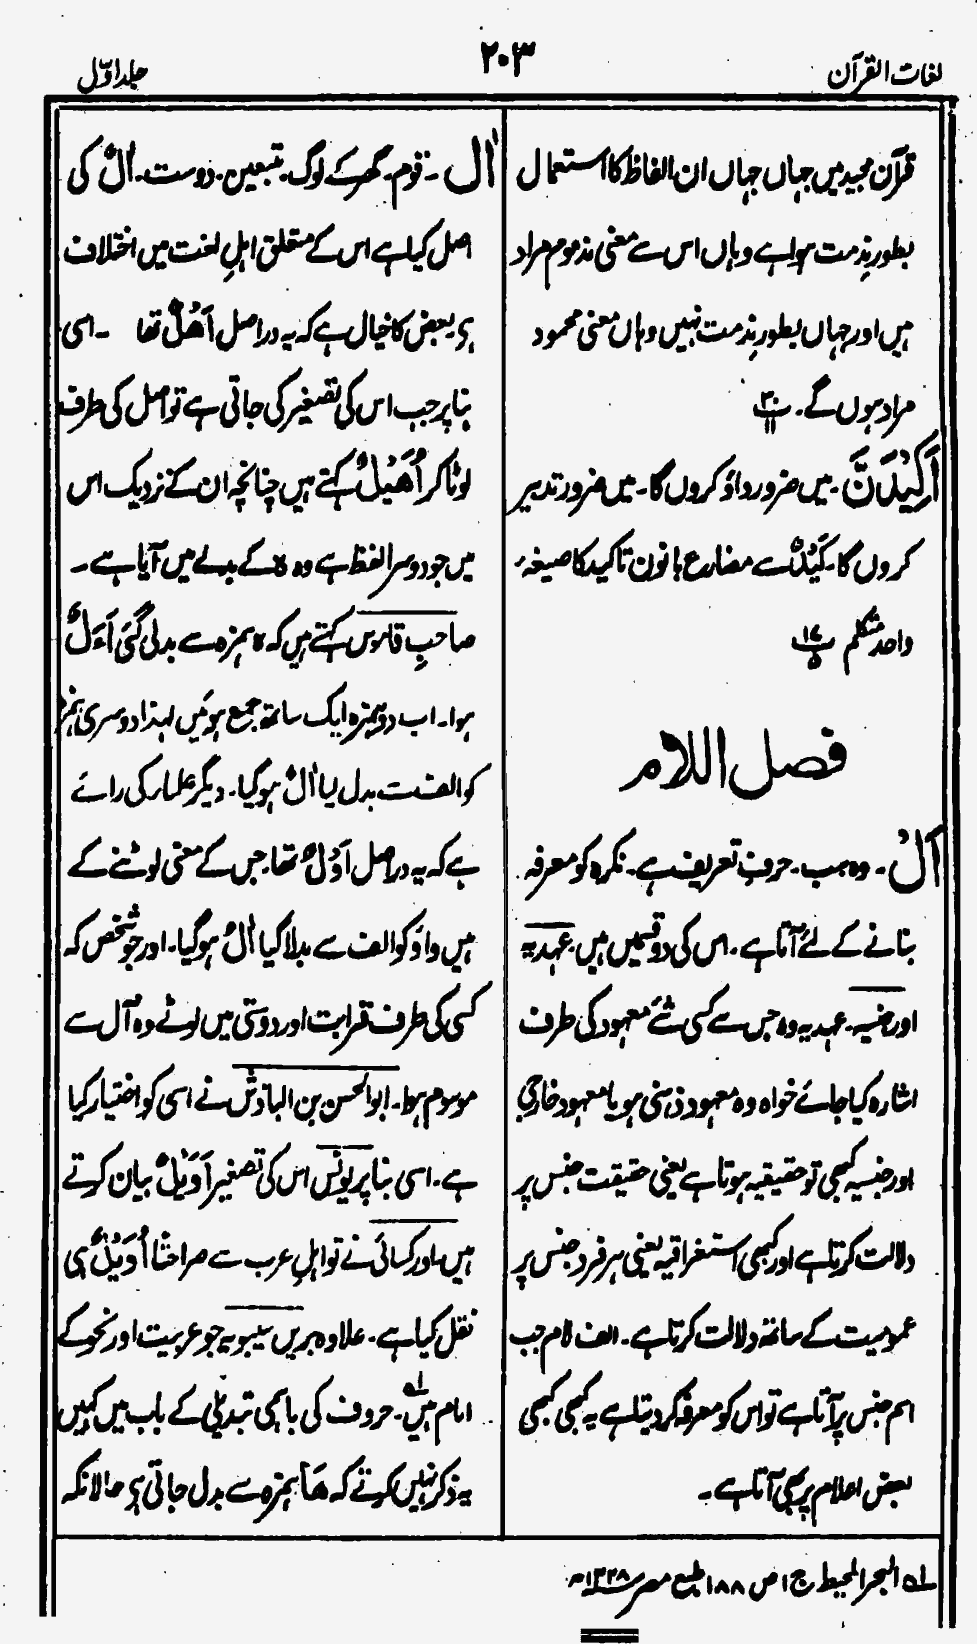 لغات القرآن
۲۰۳
جلد اوّل
قرآن مجید میں جہاں جہاں ان الفاظ کا استعمال
بطور مذمت ہوا ہے وہاں اس سے معنی مذموم مراد
ہیں اور جہاں بطور مذمت نہیں وہاں معنی محمود
مراد ہوں گے۔ ۳۰/۱۱
اَکِیْدَنَّ۔ میں ضرور داؤ کروں گا۔ میں ضرور تدبیر
کروں گا۔ کَیْدٌ سے مضارع بانون تاکید کا صیغہ
واحد متکلم ۱۷/۵
فصل اللام
اَلْ۔ وہ سب۔ حرفِ تعریف ہے۔ نکرہ کو معرفہ
بنانے کے لئے آتا ہے۔ اس کی دو قسمیں ہیں۔ عہدیہ
اور جنسیہ۔ عہدیہ وہ جس سے کسی شئے معہود کی طرف
اشارہ کیا جائے خواہ وہ معہود ذہنی ہو یا معہود خارجی
اور جنسیہ کبھی تو حقیقیہ ہوتا ہے یعنی حقیقت جنس پر
دلالت کرتا ہے اور کبھی استغراقیہ یعنی ہر فرد جنس پر
عمومیت کے ساتھ دلالت کرتا ہے۔ الف لام جب
اسم جنس پر آتا ہے تو اس کو معرفہ کر دیتا ہے یہ کبھی کبھی
بعض اعلام پر بھی آتا ہے۔
اٰل۔ قوم۔ گھر کے لوگ۔ متبعین۔ دوست۔ اٰلٌ کی
اصل کیا ہے اس کے متعلق اہلِ لغت میں اختلاف
ہے بعض کا خیال ہے کہ یہ دراصل اَھْلٌ تھا۔ اسی
بنا پر جب اس کی تصغیر کی جاتی ہے تو اصل کی طرف
لوٹا کر اُھَیْلٌ کہتے ہیں چنانچہ ان کے نزدیک اس
میں جو دوسرا لفظ ہے وہ ہ کے بدلے میں آیا ہے۔
صاحبِ قاموس کہتے ہیں کہ ہ ہمزہ سے بدلی گئی اَءَلٌ
ہوا۔ اب دو ہمزہ ایک ساتھ جمع ہوئیں لہذا دوسری ہمزہ
کو الف سے بدل لیا اٰلٌ ہو گیا۔ دیگر علمار کی رائے
ہے کہ یہ دراصل اَوَلٌ تھا۔ جس کے معنی لوٹنے کے
ہیں واؤ کو الف سے بدلا گیا اٰلٌ ہو گیا۔ اور جو شخص کہ
کسی کی طرف قرابت اور دوستی میں لوٹے وہ آل سے
موسوم ہوا۔ ابو الحسن بن الباذش نے اسی کو اختیار کیا
ہے۔ اسی بنا پر یونس اس کی تصغیر اُوَیْلٌ بیان کرتے
ہیں۔ اور کسائی نے تو اہلِ عرب سے صراحتًا اُوَیْلٌ ہی
نقل کیا ہے۔ علاوہ بریں سیبویہ جو عربیت اور نحو کے
امام ہیں۔ حروف کی باہمی تبدیلی کے باب میں کہیں
یہ ذکر نہیں کرتے کہ ھَا ہمزہ سے بدل جاتی ہے حالانکہ
لہ البحر المحیط ج ۱ ص ۱۸۸ طبع مصر ۱۳۲۸ھ